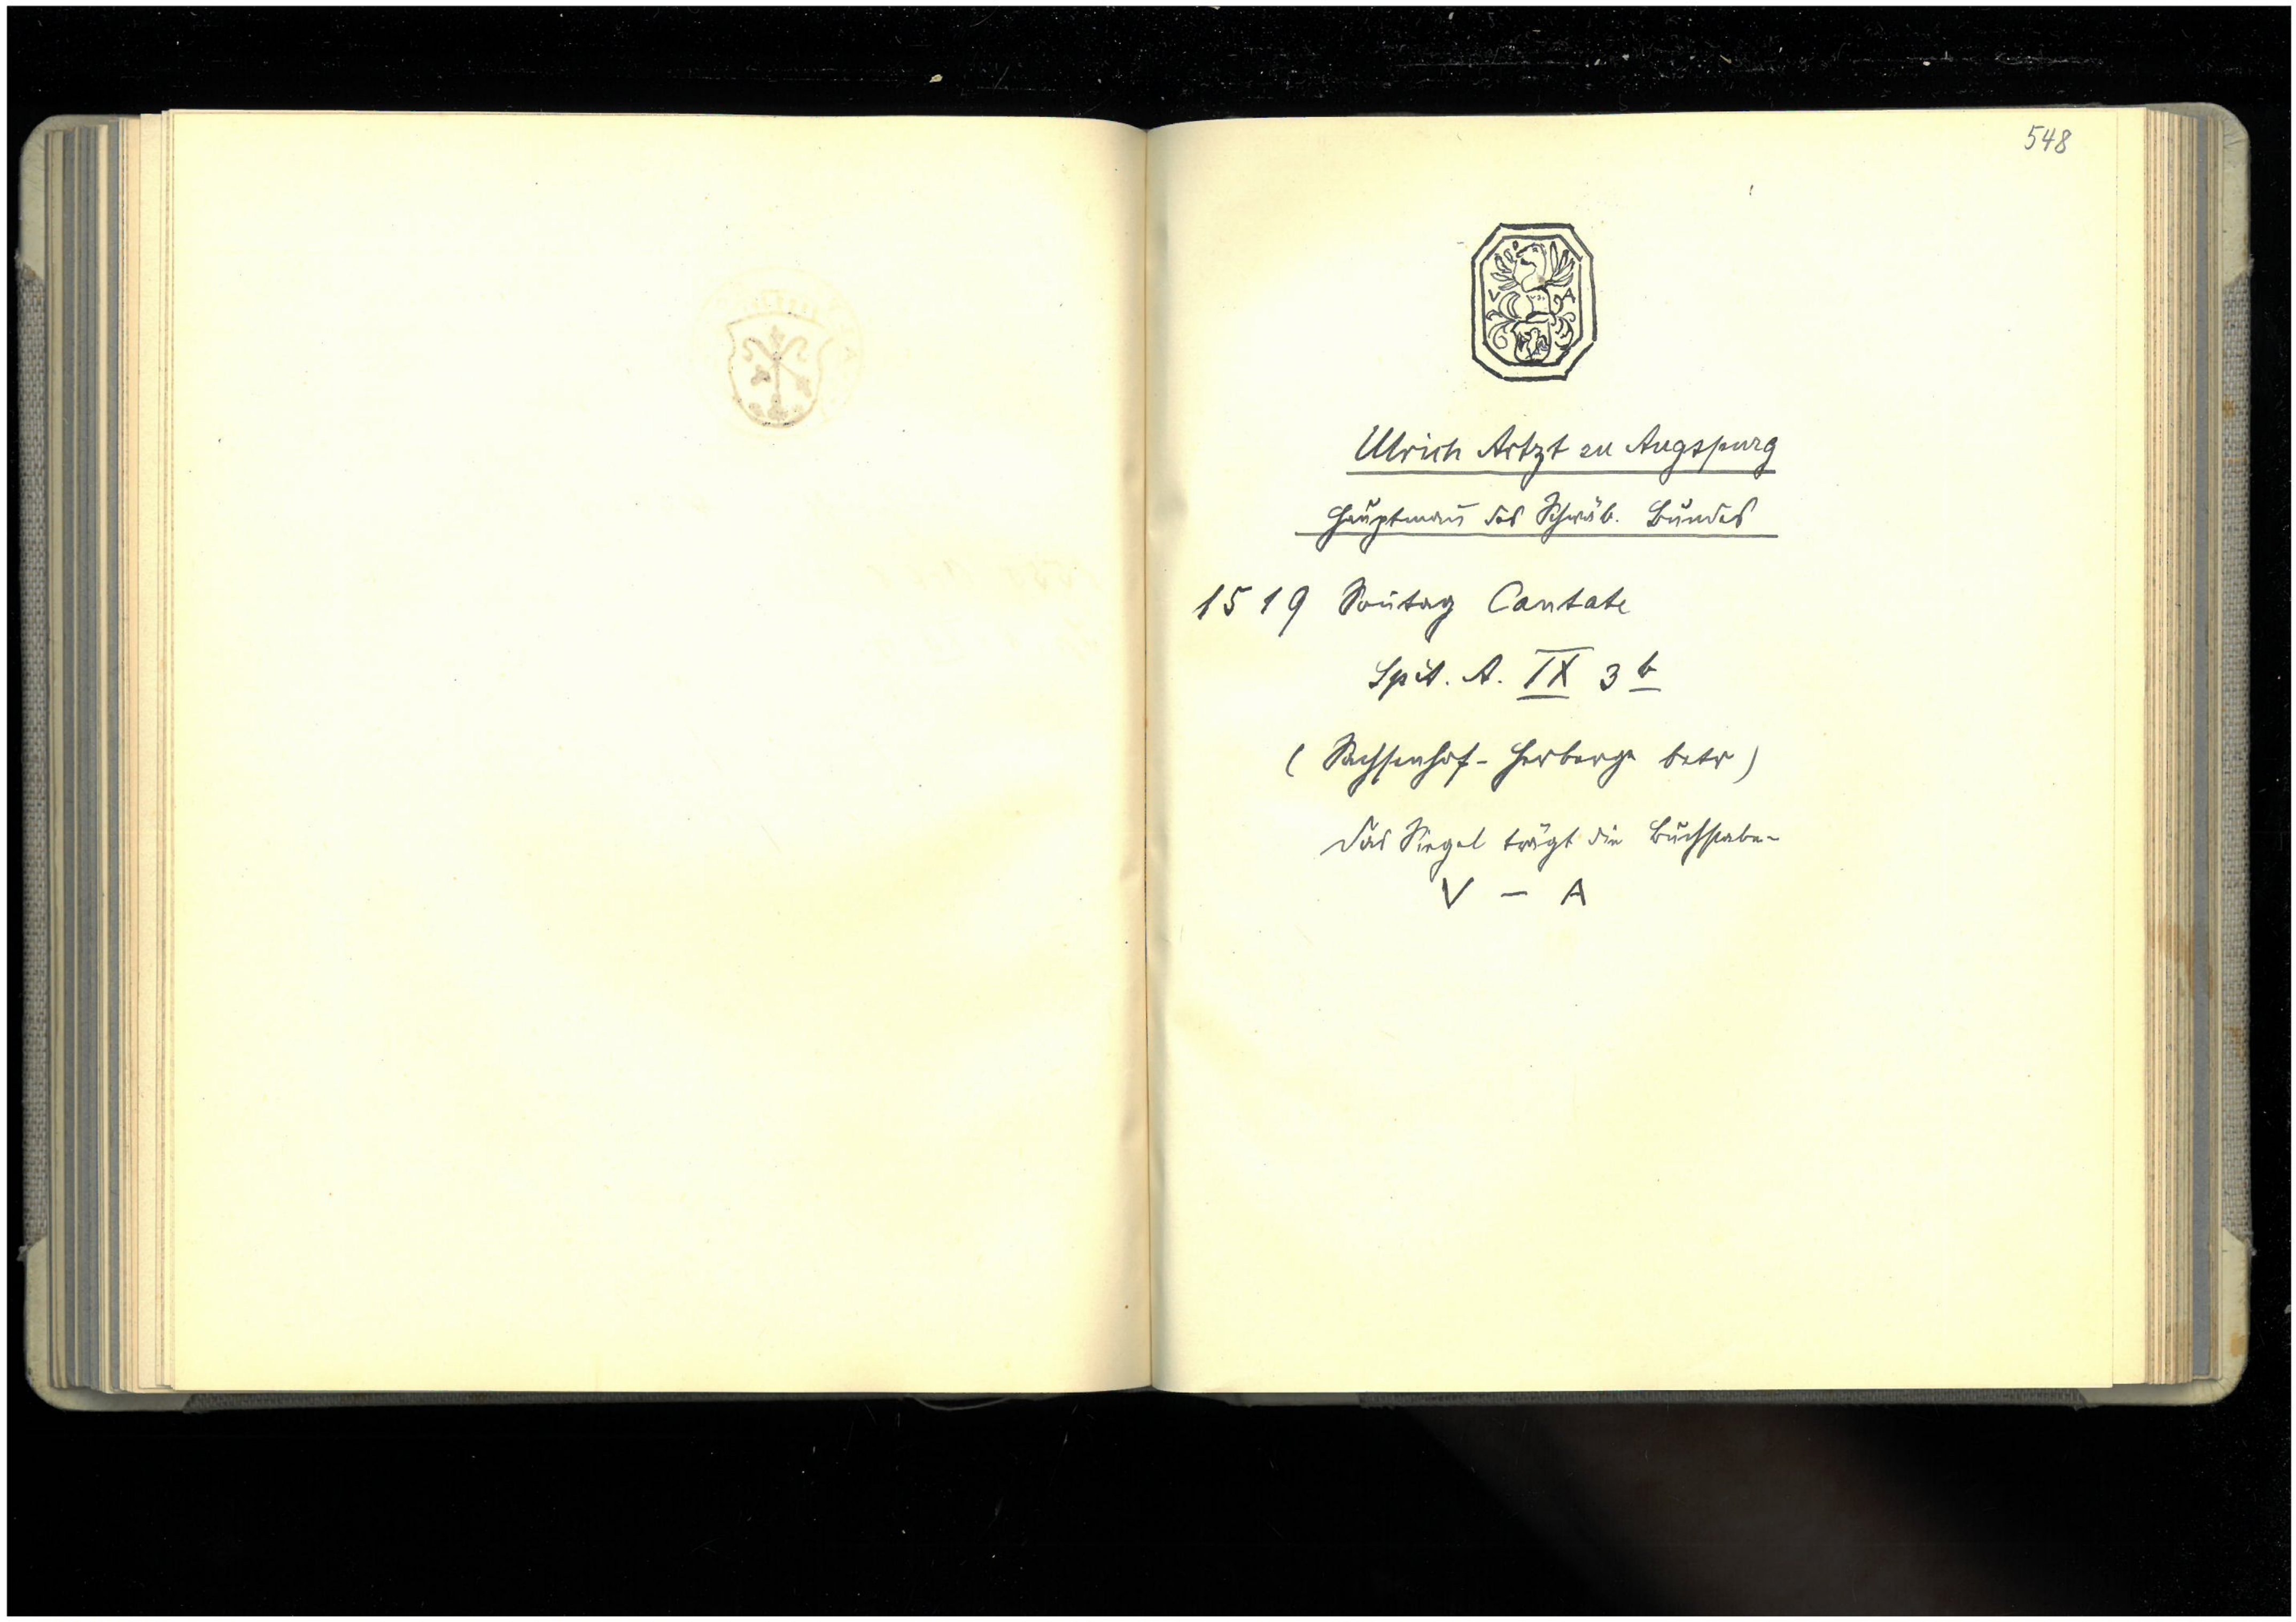 548
V A
Ulrich Artzt zu Augspurg
Hauptmañ des Schwäb. Bundes
1519 Soñtag Cantate
Spit. A. IX 3 b
( Sachsenhof - Herberge betr )
Das Siegel trägt die Buchstaben
V — A